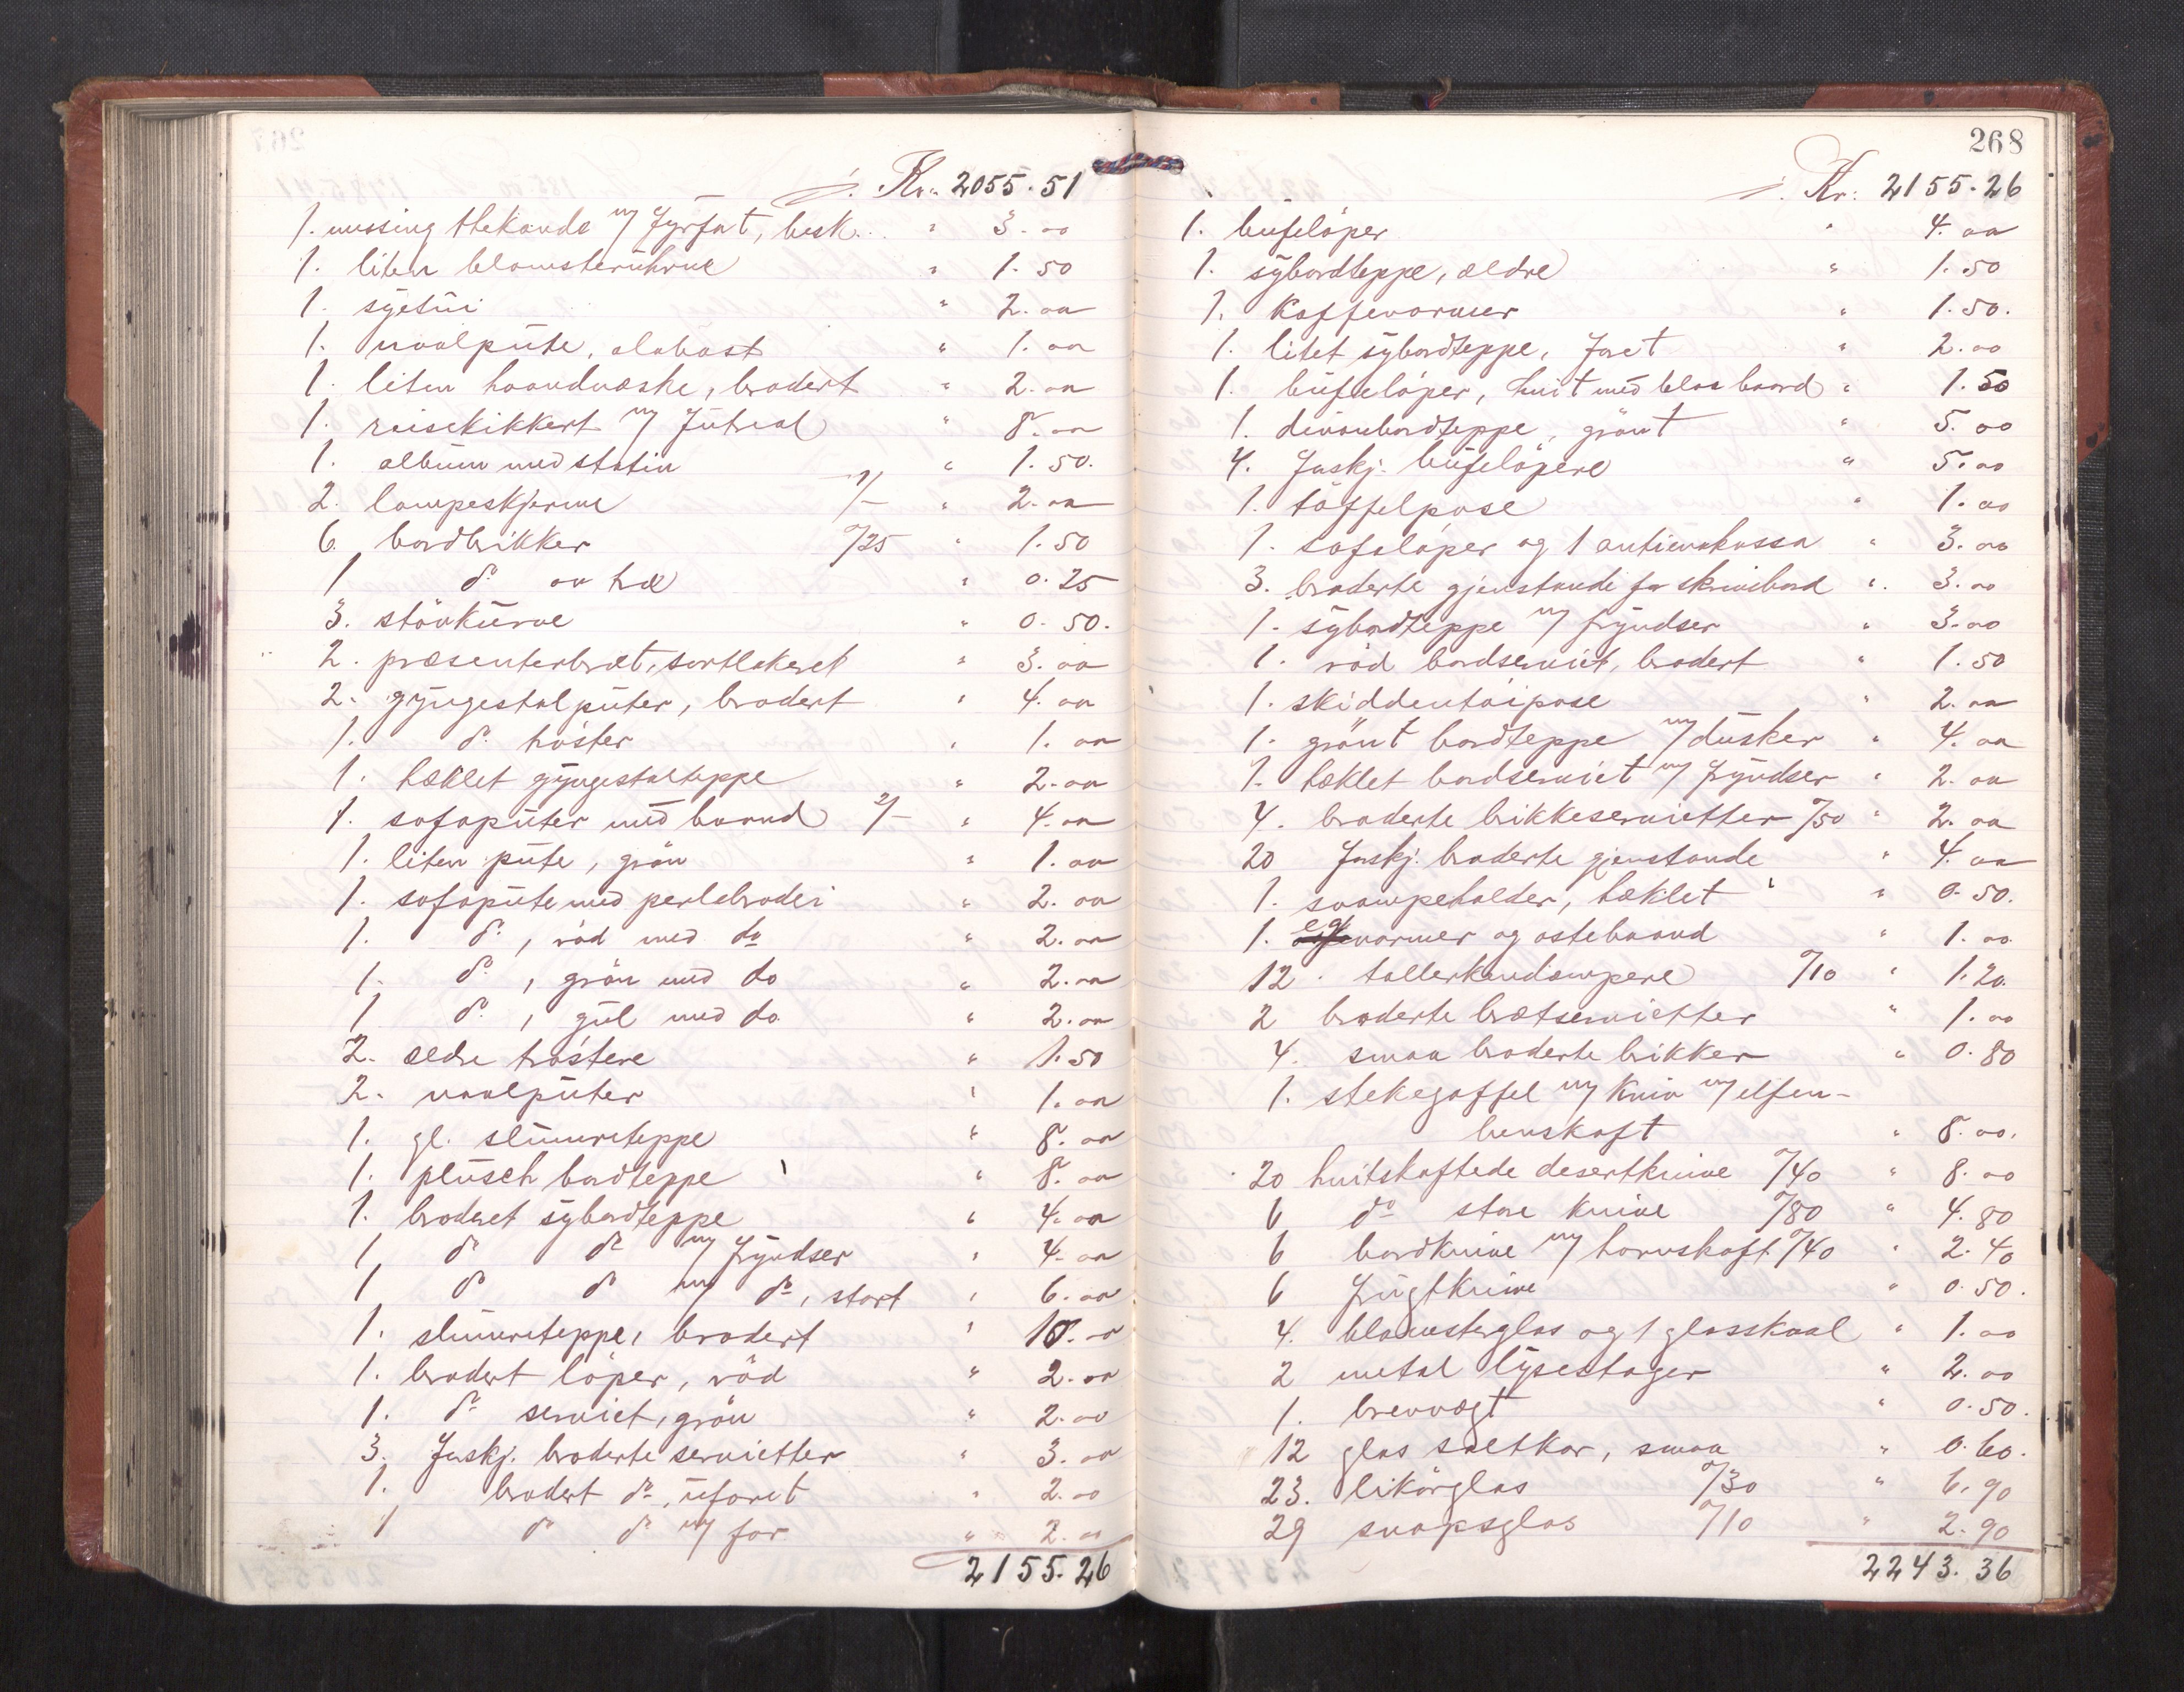 j. Kr. 2055.51
1. messing thekande m/ fyrfat, besk. " 3.00
1. liten blomsterührne " 1.50
1. syetüi " 2.00
1. naalpüte, alabast " 1.00
1. liten haandvæske, brodert " 2.00
1. reisekikkert m/ füteral " 8.00
1. albüm med statin " 1.50.
2. lampeskjerme 1/- " 2.00
6. bordbrikker 0/25 " 1.50
1 do av træ " 0.25
3. stövkürve " 0.50.
2. præsenterbræt, sortlakeret " 3.00
2. gyngestolpüter, brodert " 4.00
1. do. tröster " 1.00
1. hæklet gyngestolteppe " 2.00
4. sofapüter med baand 2/- " 4.00
1. liten püte, grön " 1.00
1. sofapüte med perlebroderi " 2.00
1. do., röd med do " 2.00
1. do., grön med do " 2.00
1 do., gül med do. " 2.00
2. ældre tröstere " 1.50
2. naalpüter " 1.00
1. gl. slümreteppe " 8.00
1. plüsch bordteppe " 8.00
1. broderet sybordteppe " 4.00
1 do do m/ fryndser " 4.00
1 do do m/ do, stort " 6.00
1. slümreteppe, brodert " 10.00
1. brodert löper, röd " 2.00
1. do serviet, grön " 2.00
3. forskj. broderte servietter " 3.00
1. brodert do, üforet " 2.00
1 do do m/ for " 2.00
2155.26
268
j. Kr: 2155.26
1. büfelöper " 4.00
1. sybordteppe, ældre " 1.50
1. Kaffevarmer " 1.50.
1. litet sybordteppe, foret " 2.00
1. büfelöper, hvit med blaa baard " 1.50
1. divanbordteppe, grönt " 5.00
4. forskj. büfelöpere " 5.00
1. töffelpose " 1.00
1. sofalöper og 1 antimakassa " 3.00
3. broderte gjenstande for skrivebord " 3.00
1. sybordteppe m/ fryndser " 3.00
1. röd bordserviet, brodert " 1.50
1. skiddentöipose " 2.00
1. grönt bordteppe m/ düsker " 4.00
1. hæklet bordserviet m/ fryndser " 2.00
4. broderte brikkeservietter 0/50 " 2.00
20 forskj. broderte gjenstande " 4.00
1. svampeholder, hæklet " 0.50.
1. eggvarmer og ostebaand " 1.00
12. tallerkendæmpere 0/10 " 1.20.
2 broderte brætservietter " 1.00
4. smaa broderte brikker " 0.80
1. stekegaffel m/ Kniv m/ elfen-
benskaft " 8.00.
20 hvitskaftede desertknive 0/40 " 8.00
6 do store knive 0/80 " 4.80
6 bordknive m/ hornskaft 0/40 " 2.40
6 frügtknive " 0.50.
4. blomsterglas og 1 glasskaal " 1.00
2 metal lysestager " 2.00
1. brevvægt " 0.50.
12 glas saltkar, smaa " 0.60.
23. likörglas 0/30 " 6.90
29 snapsglas 0/10 " 2.90
2243.36